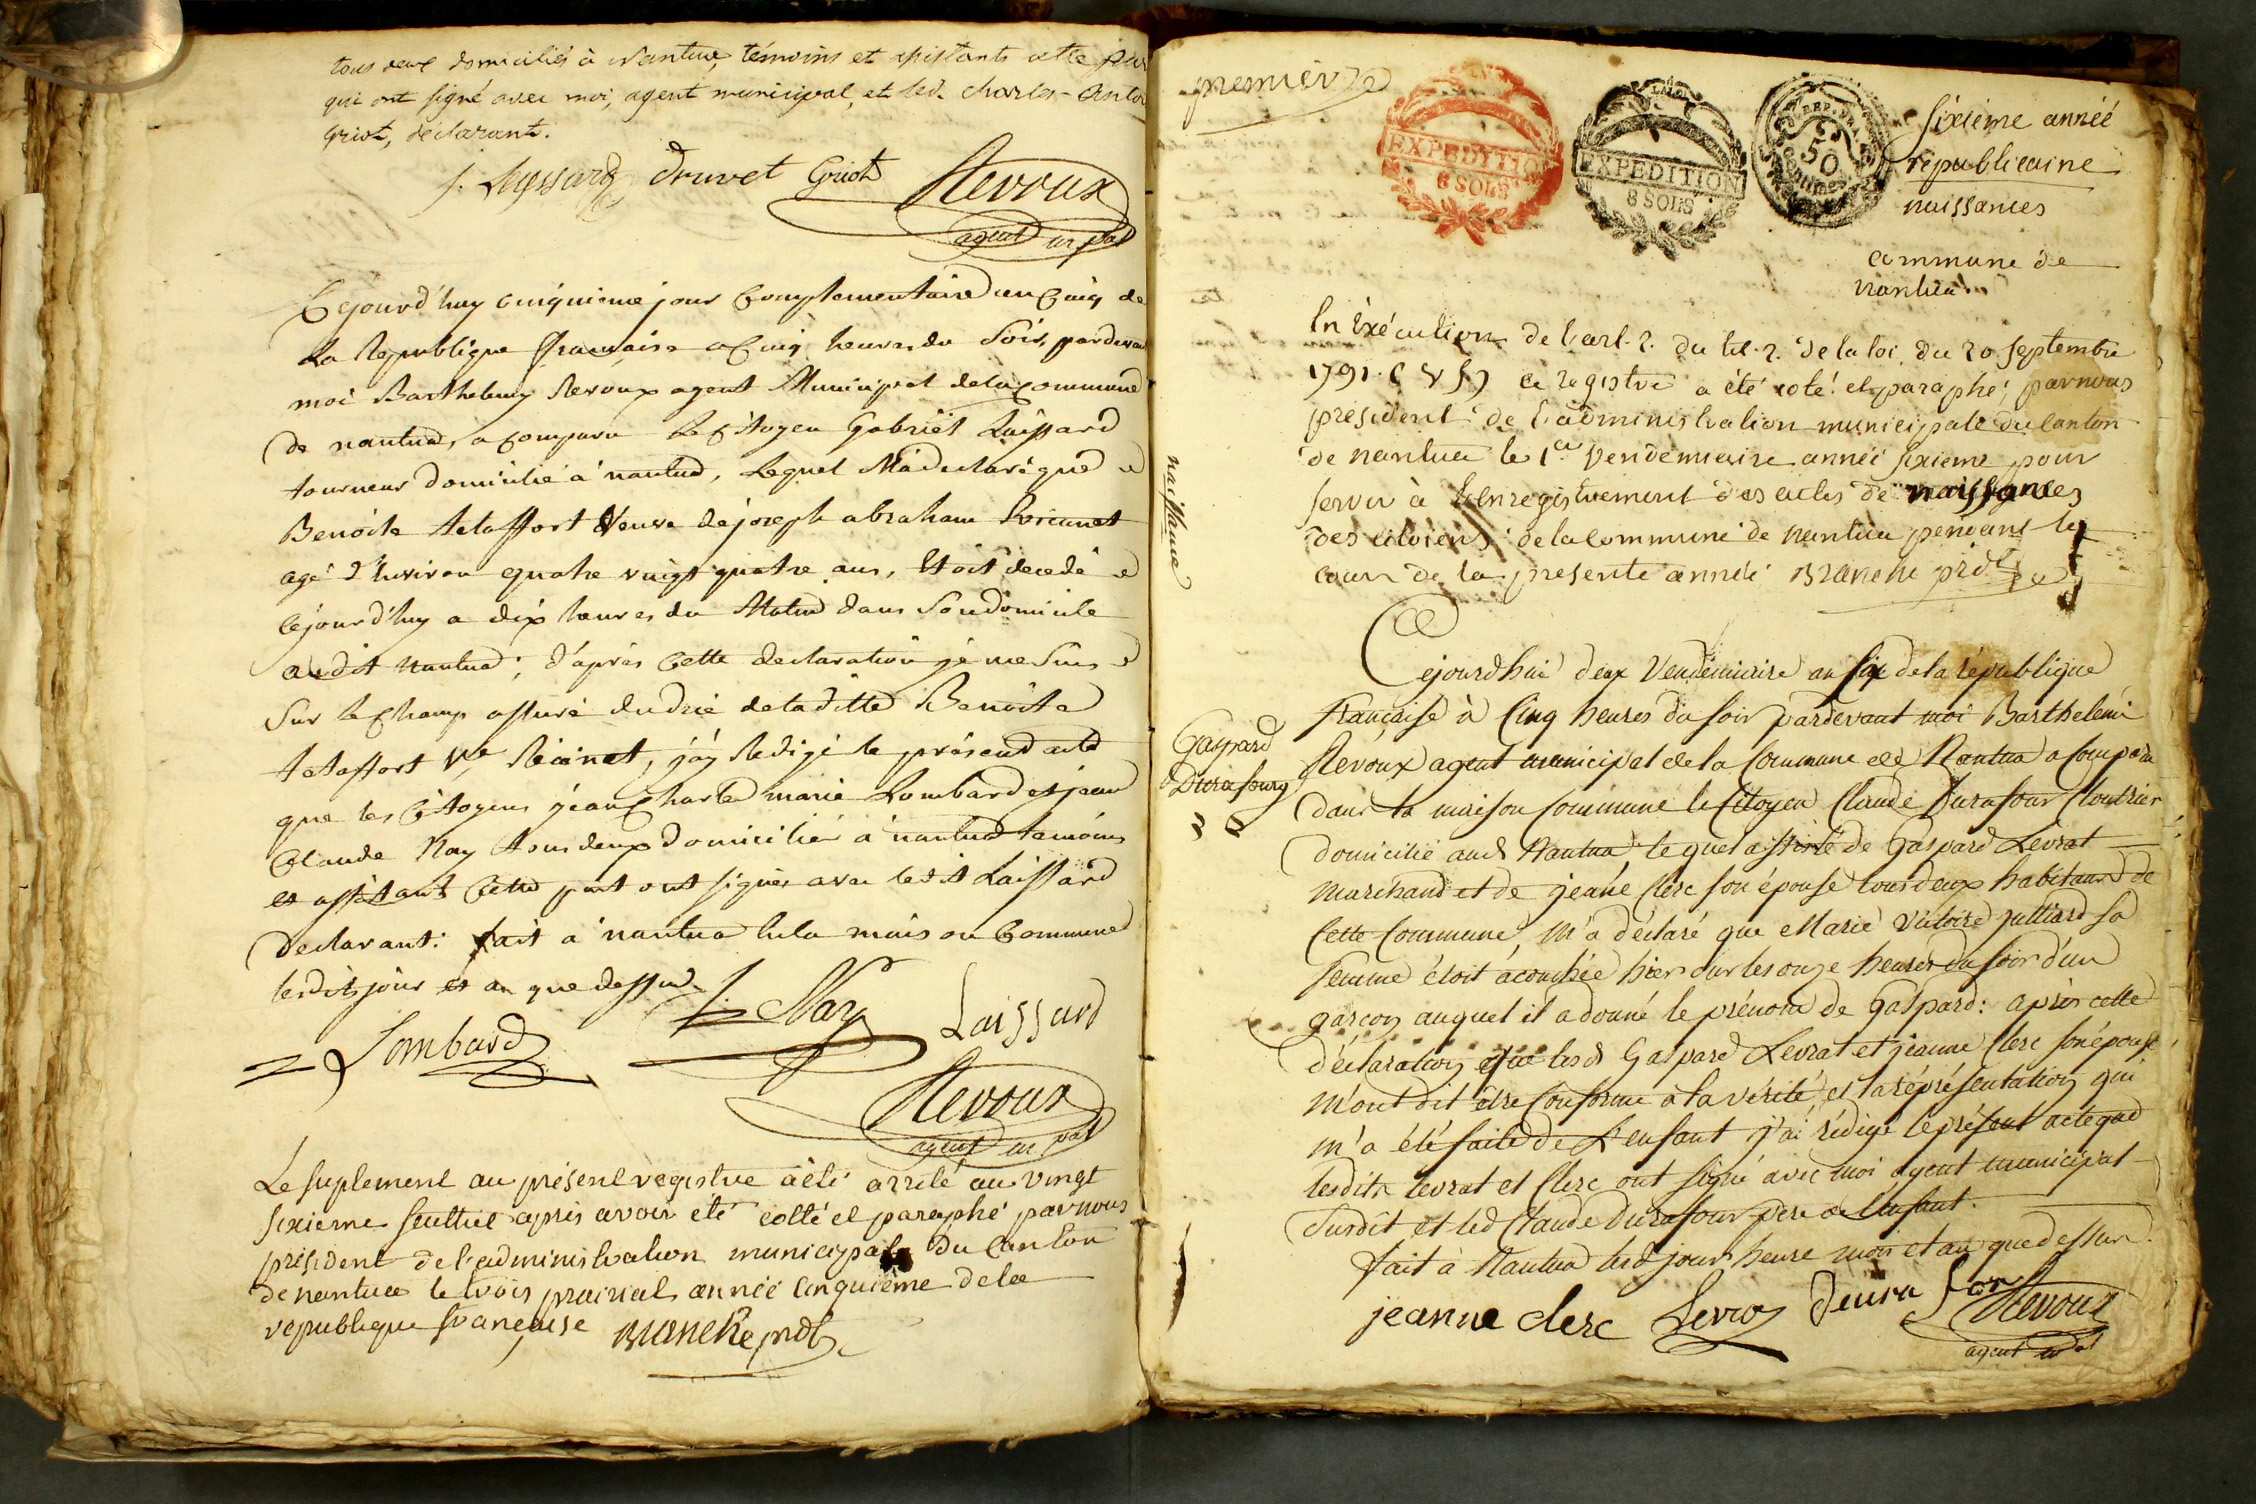 tous deux domiciliés à Nantua, témoins et assistants cette part
qui ont signé avec moi, agent municipal, et led. charles-
griot, déclarant.
druvet Griot Revoux
agent m pal
Cejourd'huy cinquieme jour Complementaire an Cinq de
La Republique française a Cinq heures du Soir, pardevan
moi Barthelemy Revoux agent Municipal de la Commune
de nantua, a comparu Le Citoyen Gabriël Laissard
tourneur domicilié à nantua, Lequel M'a declaré que
Benoite tetaffort Veuve de joseph abraham
agé d'Environ quatre vingt quatre ans, Etoit decedé
cejourd'huy a dix heures du Matin dans Son domicile
audit Nantua; d'après Cette declaration je me Suis
Sur le Champ assuré du de la ditte Benoite
tetaffort Vve, j'ay Redigé le présend acte
que les Citoyens jean Charle marie Lombard et jean
Claude May tous deux domiciliés à nantua temoins
et assistant Cette part ont signés avec ledit Laissard
declarant. fait à nantua en la maison Commune
lesdits jour et an que dessus
Lombard May Laissard
Revoux
agent m pal
Le suplement au présent registre a été arrêté au vingt
sixieme feuillet après avoir été cotté et paraphé par nous
président de l'administration municipale du Canton
de nantua le trois prairial année Cinquième de la
republique francaise Blanche pndt
première
EXPEDITION
8 SOLS
LA LOI
EXPEDITION
8 SOLS
REP. FRA
50
Centimes
sixieme année
republicaine
naissances
commune de
Nantua
naissance
En Exécution de l'art. 2. du tit. 2. de la loi du 20 septembre
1791. ce registre a été coté et paraphé; par nous
président de l'administration municipale du Canton
de Nantua le 1er Vendemiaire année sixieme pour
servir à l'enregistrement des actes de naissances
des citoiens de la commune de Nantua pendant le
cours de la presente année Blanche pidt
Gaspard
Durafourg
Cejourdhui deux Vendémiaire an six de la république
française à Cinq heures du soir pardevant moi Barthelémi
Revoux agent municipal de la Commune de Nantua a Comparu
dans la maison Commune le Citoyen Claude Durafour Cloutrier
domicilié aud Nantua, lequel assisté de Gaspard Levrat
marchand et de jeane Clerc son épouse tous deux habitans de
Cette Commune, M'a déclaré que Marie Victoire Julliard sa
femme étoit acouchée hier sur les onze heures du soir d'un
garçon auquel il a donné le prénom de Gaspard: après cette
déclaration que lesd Gaspard Levrat et jeanne Clerc son épouse
m'ont dit être Conforme à la vérité, et la réprésentation qui
m'a été faite de L'enfant j'ai rédigé le présent acte que
lesdits Levrat et Clerc ont signé avec moi agent municipal
Susdit et led Claude Durafour pere de l'enfant.
fait à Nantua lesd jour heure mois et an que dessus.
jeanne clerc Levra Deura for Revoux
agent m pal